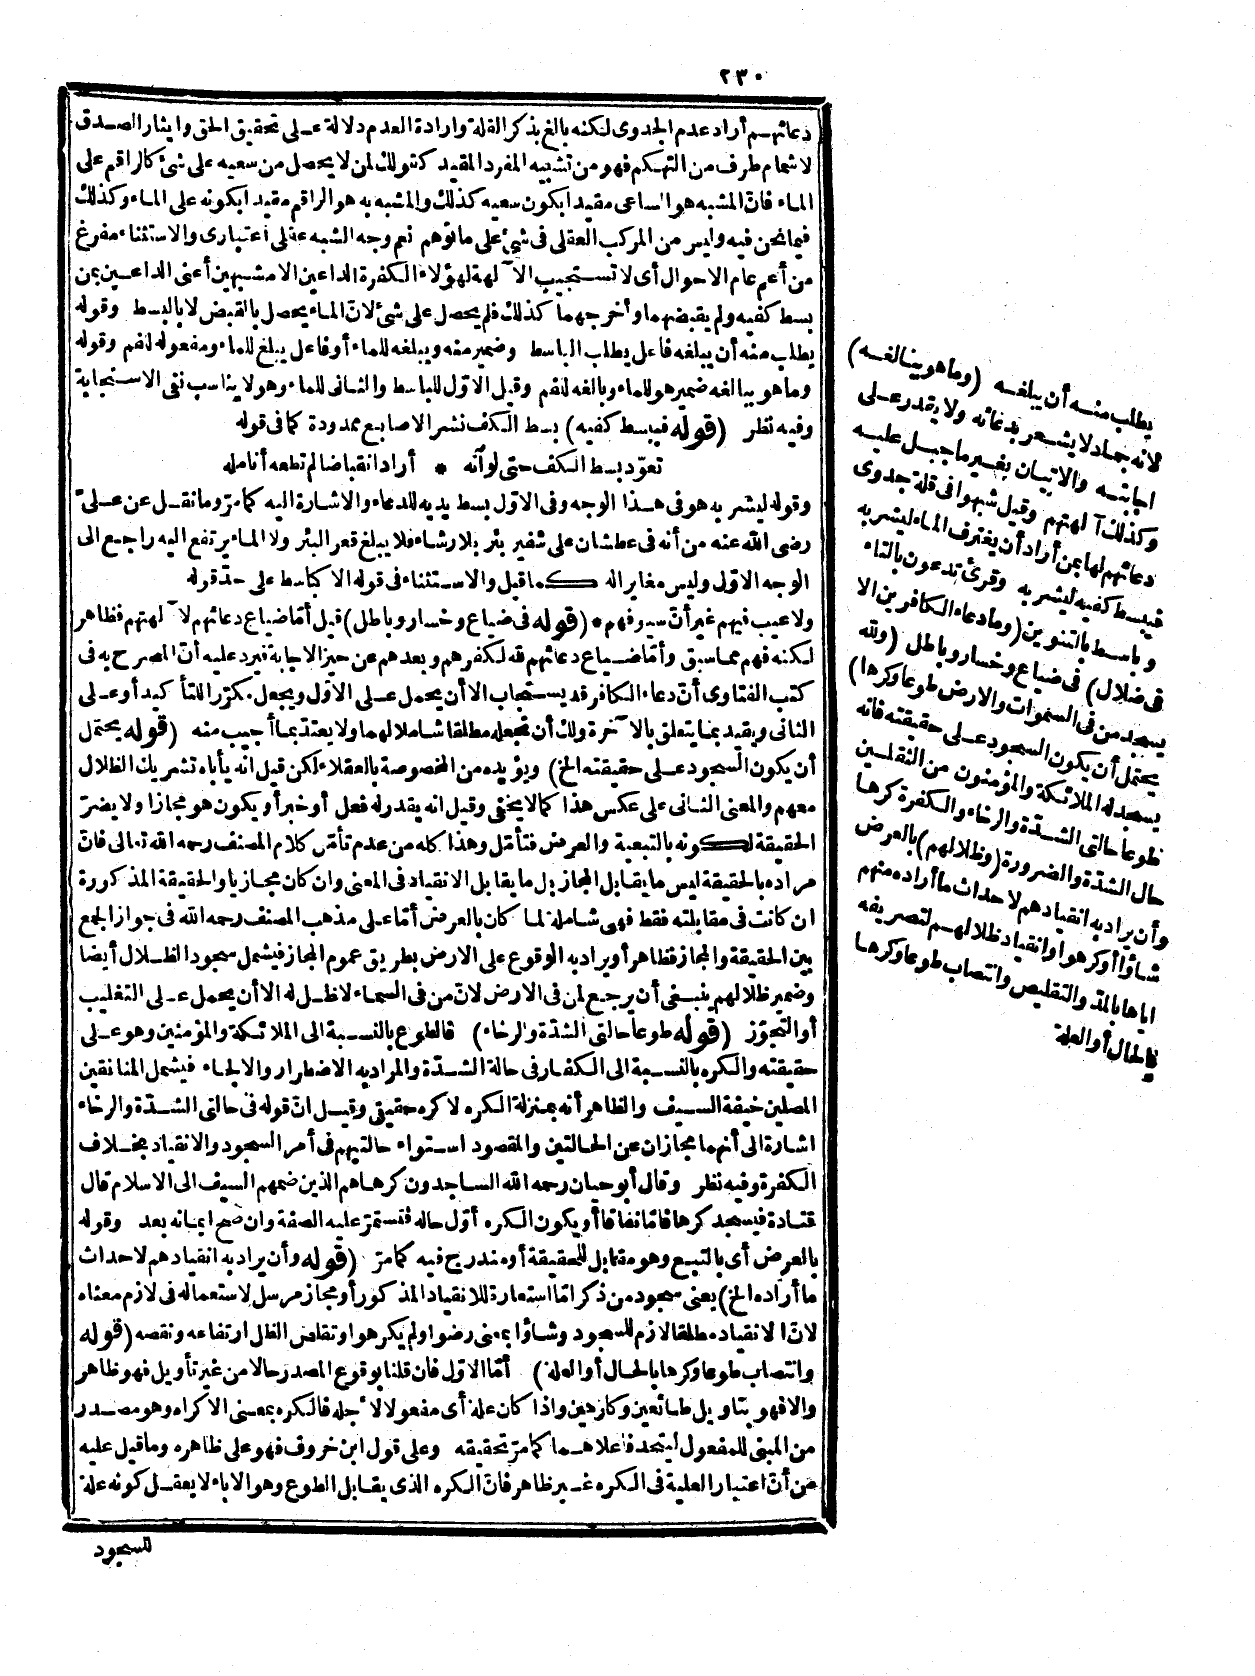 ٢٣٠
دعائهم أراد عدم الجدوى لكنه بالغ بذكر القلة وارادة العدم دلالة على تحقيق الحق وايثار الصدق
لاشمام طرف من التهكم فهو من تشبيه المفرد المقيد كقولك لمن لا يحصل من سعيه على شئ كالراقم على
الماء فان المشبه هو الساعى مقيدا بكون سعيه كذلك والمشبه به هو الراقم مقيدا بكونه على الماء وكذلك
فيما نحن فيه وليس من المركب العقلى فى شئ على ما توهم نعم وجه الشبه عقلى اعتبارى والاستثناء مفرغ
من أعم عام الاحوال أى لا تستجيب الآلهة لهؤلاء الكفرة الداعين الا مشبهين أعنى الداعين بمن
بسط كفيه ولم يقبضهما وأخرجهما كذلك فلم يحصل على شئ لان الماء يحصل بالقبض لا بالبسط وقوله
يطلب منه أن يبلغه فاعل يطلب الباسط وضمير منه ويبلغه للماء أو فاعل يبلغ للماء ومفعوله للفم وقوله
وما هو ببالغه ضمير هو للماء وبالغه للفم وقيل الاوّل للباسط والثانى للماء وهو لا يناسب نفى الاستجابة
وفيه نظر (قوله فيبسط كفيه) بسط الكف نشر الاصابع ممدودة كما فى قوله
تعوّد بسط الكف حتى لو آنه * أراد انقباضا لم تطعه أنامله
وقوله ليشربه هو فى هذا الوجه وفى الاوّل بسط يديه للدعاء والاشارة اليه كما مرّ وما نقل عن علىّ
رضى الله عنه من أنه فى عطشان على شفير بئر بلا رشاء فلا يبلغ قعر البئر ولا الماء يرتفع اليه راجع الى
الوجه الاوّل وليس مغايرا له كما قيل والاستثناء فى قوله الا كباسط على حدّ قوله
ولا عيب فيهم غير أن سيوفهم * (قوله فى ضياع وخسار وباطل) قيل أمّا ضياع دعائهم لآلهتهم فظاهر
لكنه فهم مما سبق وأمّا ضياع دعائهم لله لكفرهم وبعدهم عن حيز الاجابة فيرد عليه أنّ المصرح به فى
كتب الفتاوى أنّ دعاء الكافر قد يستجاب الا أن يحمل على الاوّل ويجعل مكرّرا للتأكيد أو على
الثانى ويقيد بما يتعلق بالآخرة ولك أن تجعله مطلقا شاملا لهما ولا يعتدّ بما أجيب منه (قوله يحتمل
أن يكون السجود على حقيقته الخ) ويؤيده من المخصوصة بالعقلاء لكن قيل انه يأباه تشريك الظلال
معهم والمعنى الثانى على عكس هذا كما لا يخفى وقيل انه يقدر له فعل أو خبر أو يكون هو مجازا ولا يضرّ
الحقيقة لكونه بالتبعية والعرض فتأمّل وهذا كله من عدم تأمّل كلام المصنف رحمه الله تعالى فان
مراده بالحقيقة ليس ما يقابل المجاز بل ما يقابل الانقياد فى المعنى وان كان مجازيا والحقيقة المذكورة
ان كانت فى مقابلته فقط فهى شاملة لما كان بالعرض أمّا على مذهب المصنف رحمه الله فى جواز الجمع
بين الحقيقة والمجاز فظاهر أو يراد به الوقوع على الارض بطريق عموم المجاز فيشمل سجود الظلال أيضا
وضمير ظلالهم ينبغى أن يرجع لمن فى الارض لانّ من فى السماء لا ظل له الا أن يحمل على التغليب
أو التجوّز (قوله طوعا حالتى الشدّة والرخاء) فالطوع بالنسبة الى الملائكة والمؤمنين وهو على
حقيقته والكره بالنسبة الى الكفار فى حالة الشدّة والمراد به الاضطرار والالجاء فيشمل المنافقين
المصلين خيفة السيف والظاهر أنه بمنزلة الكره لا كره حقيقى وقيل انّ قوله فى حالتى الشدّة والرخاء
اشارة الى أنهما مجازان عن الحالتين والمقصود استواء حالتيهم فى أمر السجود والانقياد بخلاف
الكفرة وفيه نظر وقال أبو حيان رحمه الله الساجدون كرها هم الذين ضمهم السيف الى الاسلام قال
قتادة فيسجد كرها فامّا نفاقا أو يكون الكره أوّل حاله فتستمرّ عليه الصفة وان صح ايمانه بعد وقوله
بالعرض أى بالتبع وهو مقابل للحقيقة أو مندرج فيه كما مرّ (قوله وأن يراد به انقيادهم لاحداث
ما أراده الخ) يعنى سجود من ذكر امّا استعارة للانقياد المذكور أو مجاز مرسل لاستعماله فى لازم معناه
لانّ الانقياد مطلقا لازم للسجود وشاؤا بمعنى رضوا ولم يكرهوا وتقلص الظل ارتفاعه ونقصه (قوله
وانتصاب طوعا وكرها بالحال أو العلة) أمّا الاوّل فان قلنا بوقوع المصدر حالا من غير تأويل فهو ظاهر
والا فهو بتأويل طائعين وكارهين واذا كان علة أى مفعولا لاجله فالكره بمعنى الاكراه وهو مصدر
من المبنى للمفعول ليتحد فاعلاهما كما مرّ تحقيقه وعلى قول ابن خروف فهو على ظاهره وما قيل عليه
من أنّ اعتبار العلية فى الكره غير ظاهر فانّ الكره الذى يقابل الطوع وهو الاباء لا يعقل كونه علة
للسجود
يطلب منه أن يبلغه (وما هو ببالغه)
لانه جماد لا يشعر بدعائه ولا يقدر على
اجابته والاتيان بغير ما جبل عليه
وكذلك آلهتهم وقيل شبهوا فى قلة جدوى
دعائهم لها بمن أراد أن يغترف الماء ليشربه
فيبسط كفيه ليشربه وقرئ تدعون بالتاء
وباسط بالتنوين (وما دعاء الكافرين الا
فى ضلال) فى ضياع وخسار وباطل (ولله
يسجد من فى السموات والارض طوعا وكرها)
يحتمل أن يكون السجود على حقيقته فانه
يسجد له الملائكة والمؤمنون من الثقلين
طوعا حالتى الشدّة والرخاء والكفرة كرها
حال الشدّة والضرورة (وظلالهم) بالعرض
وأن يراد به انقيادهم لاحداث ما أراده منهم
شاؤا أو كرهوا وانقياد ظلالهم لتصريفه
اياها بالمدّ والتقليص وانتصاب طوعا وكرها
بالحال أو العلة